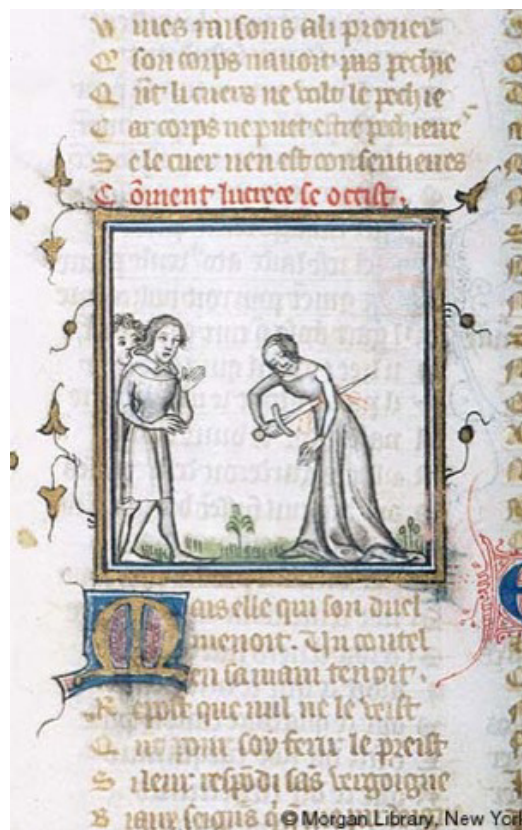 W mes raisons ali prouer
Q son corps nauoit pas pechie
Q nt li cuers ne volt le pechie
C ar corps ne puet estre pechieur
S e le cuer nen est consentieres
Cōment lucrece se occist.
Mais elle qui son duel
menoit. Un coutel
en sa main tenoit.
R epost que nul ne le veist
Q ant pour soy ferir le preist
S i leur respōdi sās vergoigne
B iaux seigns
© Morgan Library, New York